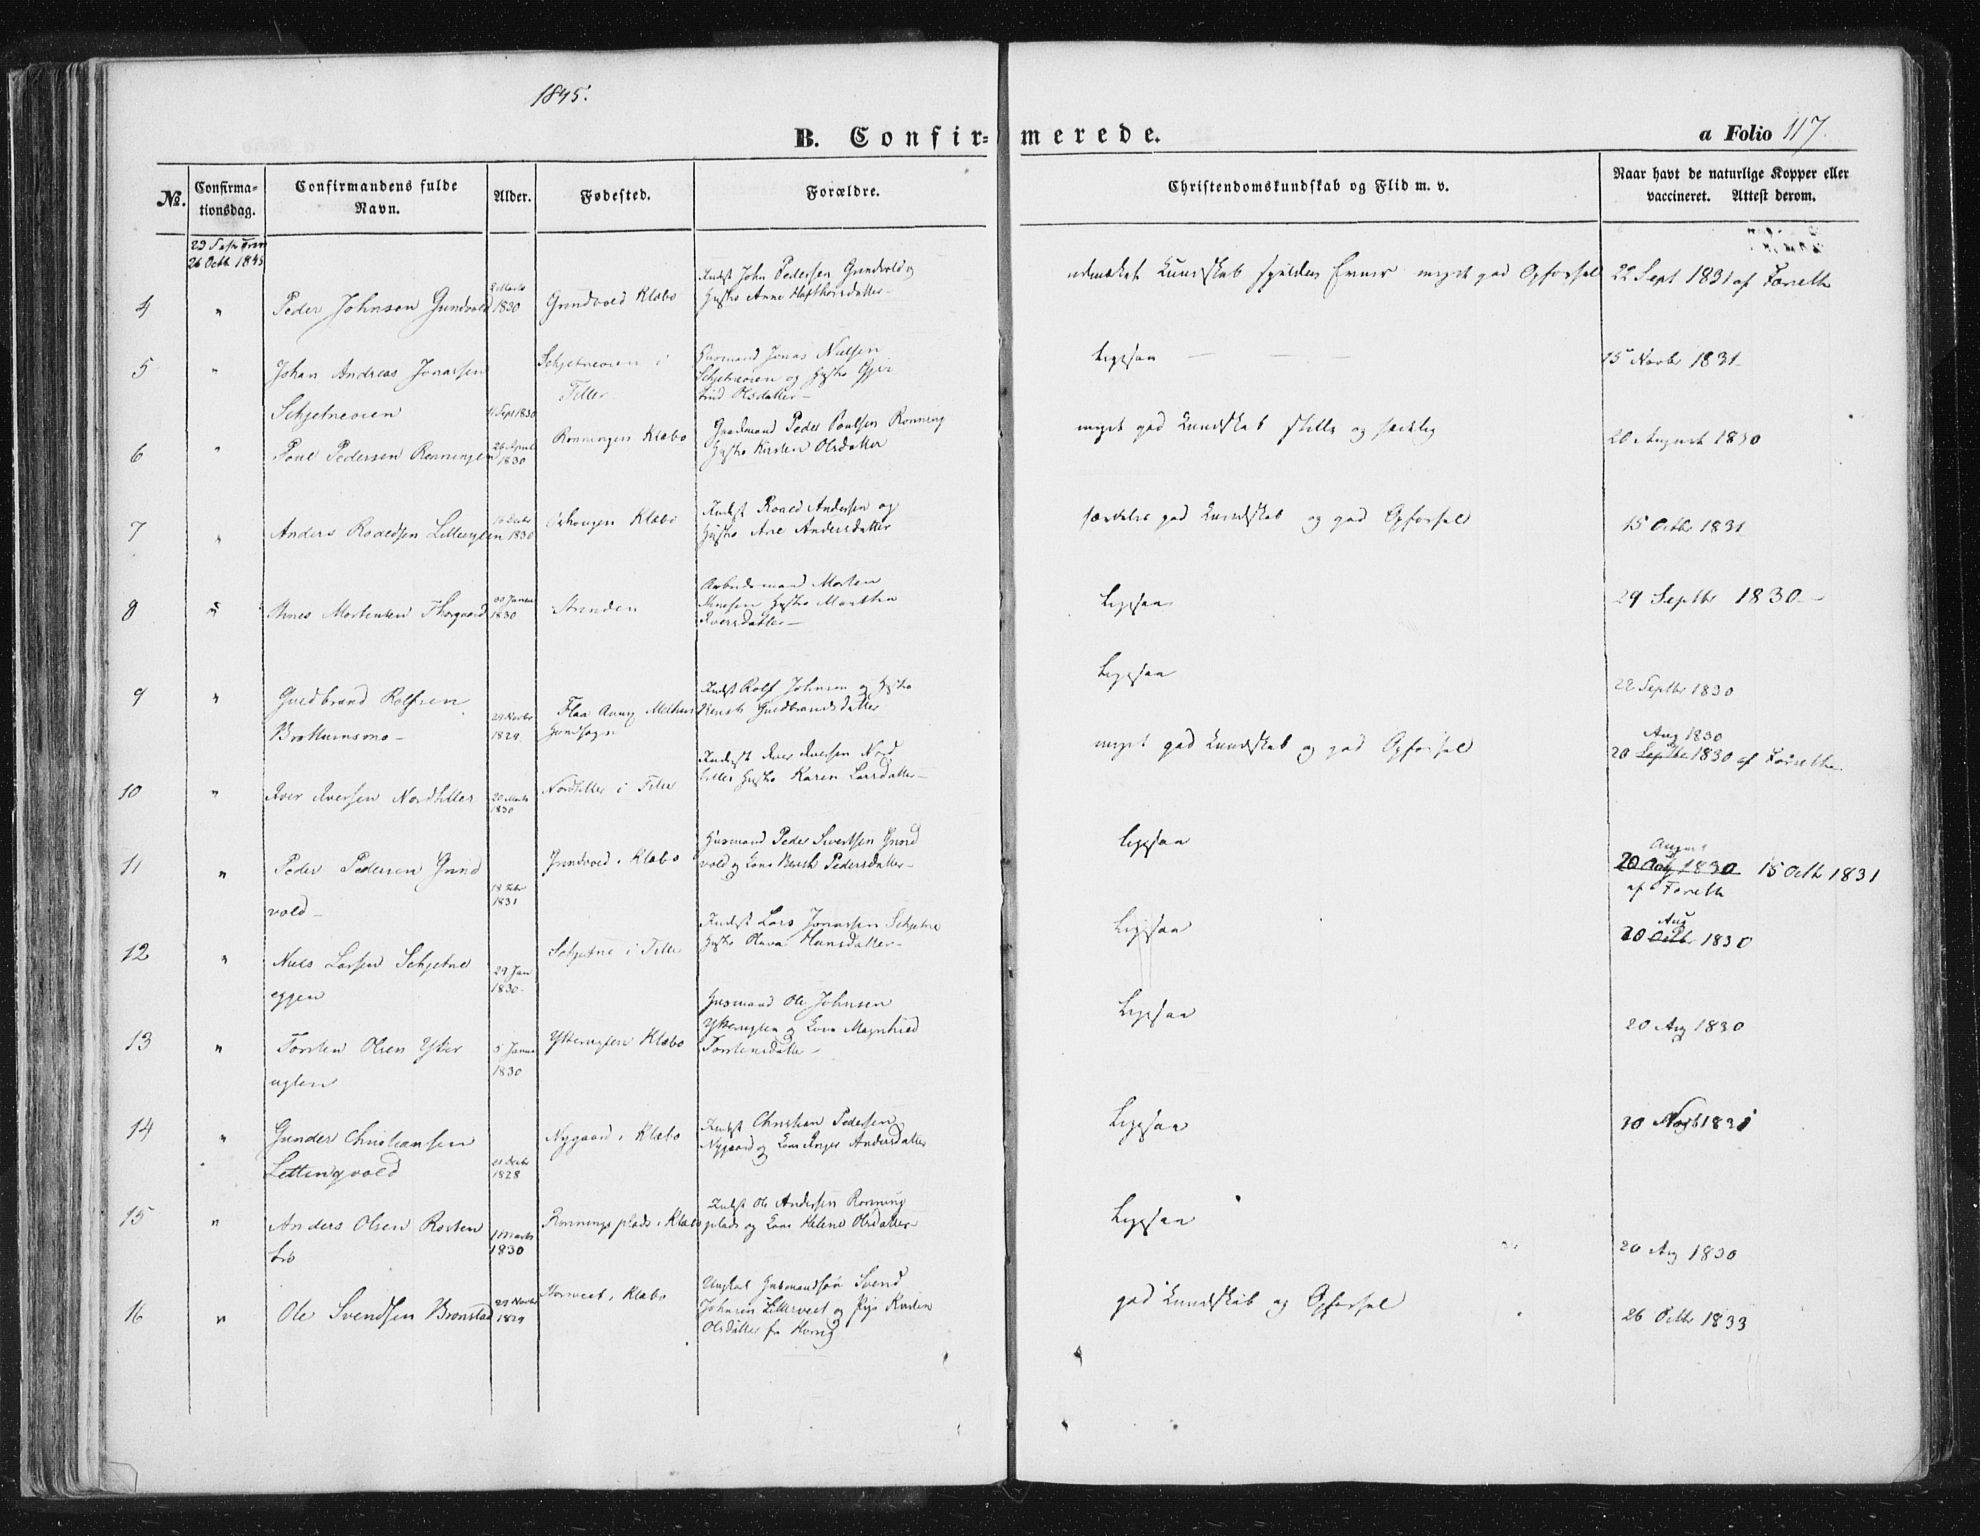 1845.
B. Confir=merede.
a Folio 117.
No.
Confirma-tionsdag.
Confirmandens fulde Navn.
Alder.
Fødested.
Forældre.
Christendomskundskab og Flid m. v.
Naar havt de naturlige Kopper eller vaccineret. Attest derom.
26 Octb 1845
4 " Peder Johnsen Grindvold
Marts 1830
Grindvold Klæbo
Inderst John Pedersen Grindvold og
Hustro Anne
Kundskab
Evner meget god Opførsel
22 Sept 1831 af Forseth
5 " Johan Andreas Jonassen
Schjetneoien
11 Sept 1830
Schjetneoien i
Tiller
Huusmand Jonas Nielsen
Schjetneoien og Hustro
Olsdatter
Ligesaa
15 Novbr 1831
6 " Poul Pedersen Rønningen
26 April 1830
Rønningen Klæbo
Gaardmand Peder Poulsen Rønning
Hustro Kirsten Olsdatter
meget god Kundskab stille og sædelig
20 August 1830
7 " Anders Roaldsen Litleuglen
1830
Klæbo
Inderst Roald Andersen og
Hustro Ane Andersdatter
særdeles god Kundskab og god Opførsel
15 Octbr 1831
8 " Mortensen
Januar 1830
Stranden
Arbeidsmand Morten
Hustro Martha
Iversdatter
Ligesaa
29 Septbr 1830
9 " Guldbrand Rolfsen
29 Novbr 1829
Flaa Melhus
Inderst Rolf Johnsen og Hustro
Guldbrandsdatter
Ligesaa
22 Septbr 1830
10 " Iver Iversen Nordtiller
20 Marts 1830
Nordtiller i Tiller
Inderst Iver Iversen Nord
tiller Hustro Karen Larsdatter
meget god Kundskab og god Opførsel
Aug 1830
20 Septbr 1830 af Forseth
11 " Peder Pedersen Grind
vold
18 Febr 1831
Grindvold i Klæbo
Huusmand Peder Sivertsen Grind
vold og Kone Berith Pedersdatter
Ligesaa
August
20 Aug 1830 15 Octb 1831
af Forseth
12 " Niels Larsen Schjetne
eggen
29 Jan 1830
Schjetne i Tiller
Inderst Lars Jonassen Schjetne
Hustro Olava Hansdatter
Ligesaa
Aug
20 Octb 1830
13 " Torsten Olsen Ytter
uglen
5 Januar 1830
Ytteruglen Klæbo
Huusmand Ole Johnsen
Ytteruglen og Kone Magnhild
Torstensdatter
Ligesaa
20 Aug 1830
14 " Gunder Christiansen
Lettingvold
1828
Nygaard i Klæbo
Inderst Christian Pedersen
Nygaard og Kone Inger Andersdatter
Ligesaa
10 1831
15 " Anders Olsen Rosten
1 Marts 1830
Rønningsplads i Klæbo
Inderst Ole Andersen Rønning
plads og Kone Helene Olsdatter
Ligesaa
20 Aug 1830
16 " Ole Svendsen Brønstad
29 Novbr 1829
i Klæbo
Ungkarl Huusmandsøn Svend
Johnsen og Pige
Olsdatter
god Kundskab og Opførsel
26 Octbr 1833